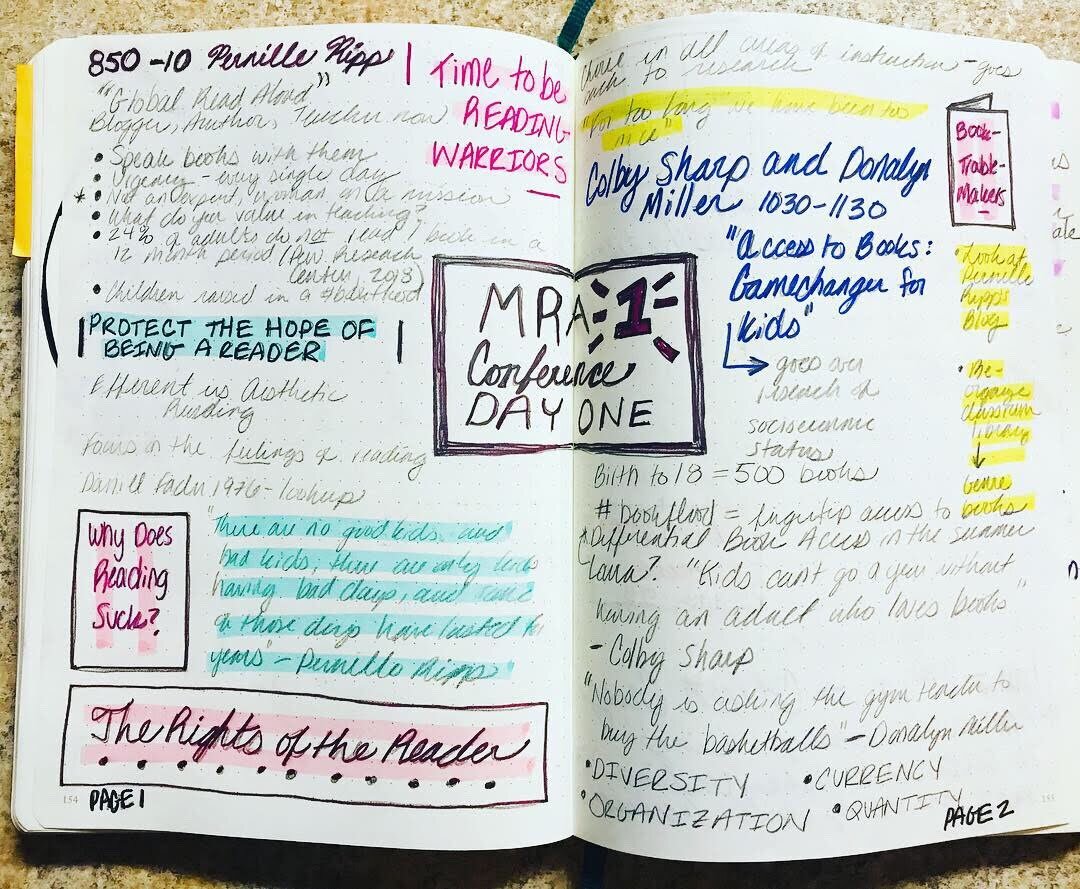 850 -10 Pernille Ripp
"Global Read Aloud"
Blogger, Author, Teacher now
• Speak books with them
• Urgency - every single day
* • Not an expert, woman on a mission
• What do you value in teaching?
• 24% of adults do not read 1 book in a
12 month period (Pew Research
Center, 2013)
• Children raised in a #bookflood
Time to be
READING
WARRIORS
PROTECT THE HOPE OF
BEING A READER
Efferent vs Aesthetic
Reading
Focus on the feelings of reading
Daniel Fader 1976 - lookup
Why Does
Reading
Suck?
"There are no good kids, and
bad kids, there are only kids
having bad days, and some
of those days have lasted for
years" - Pernille Ripp
The Rights of the Reader
154 PAGE 1
MRA 1
Conference
DAY ONE
Choice in all areas of instruction - goes
back to research
"For too long we have been too
nice"
Colby Sharp and Donalyn
Miller 1030-1130
"Access to Books:
Gamechanger for
Kids"
goes over
research of
socioeconomic
status
Book-
Trouble-
Makers
• Look at
Pernille
Ripp's
Blog
• Re-
organize
classroom
library
Genre
books
Birth to 18 = 500 books
# bookflood = fingertip access to
* Differential Book Access in the summer
Lana? "Kids can't go a year without
having an adult who loves books"
- Colby Sharp
"Nobody is asking the gym teacher to
buy the basketballs" - Donalyn Miller
• DIVERSITY • CURRENCY
• ORGANIZATION • QUANTITY
PAGE 2 155